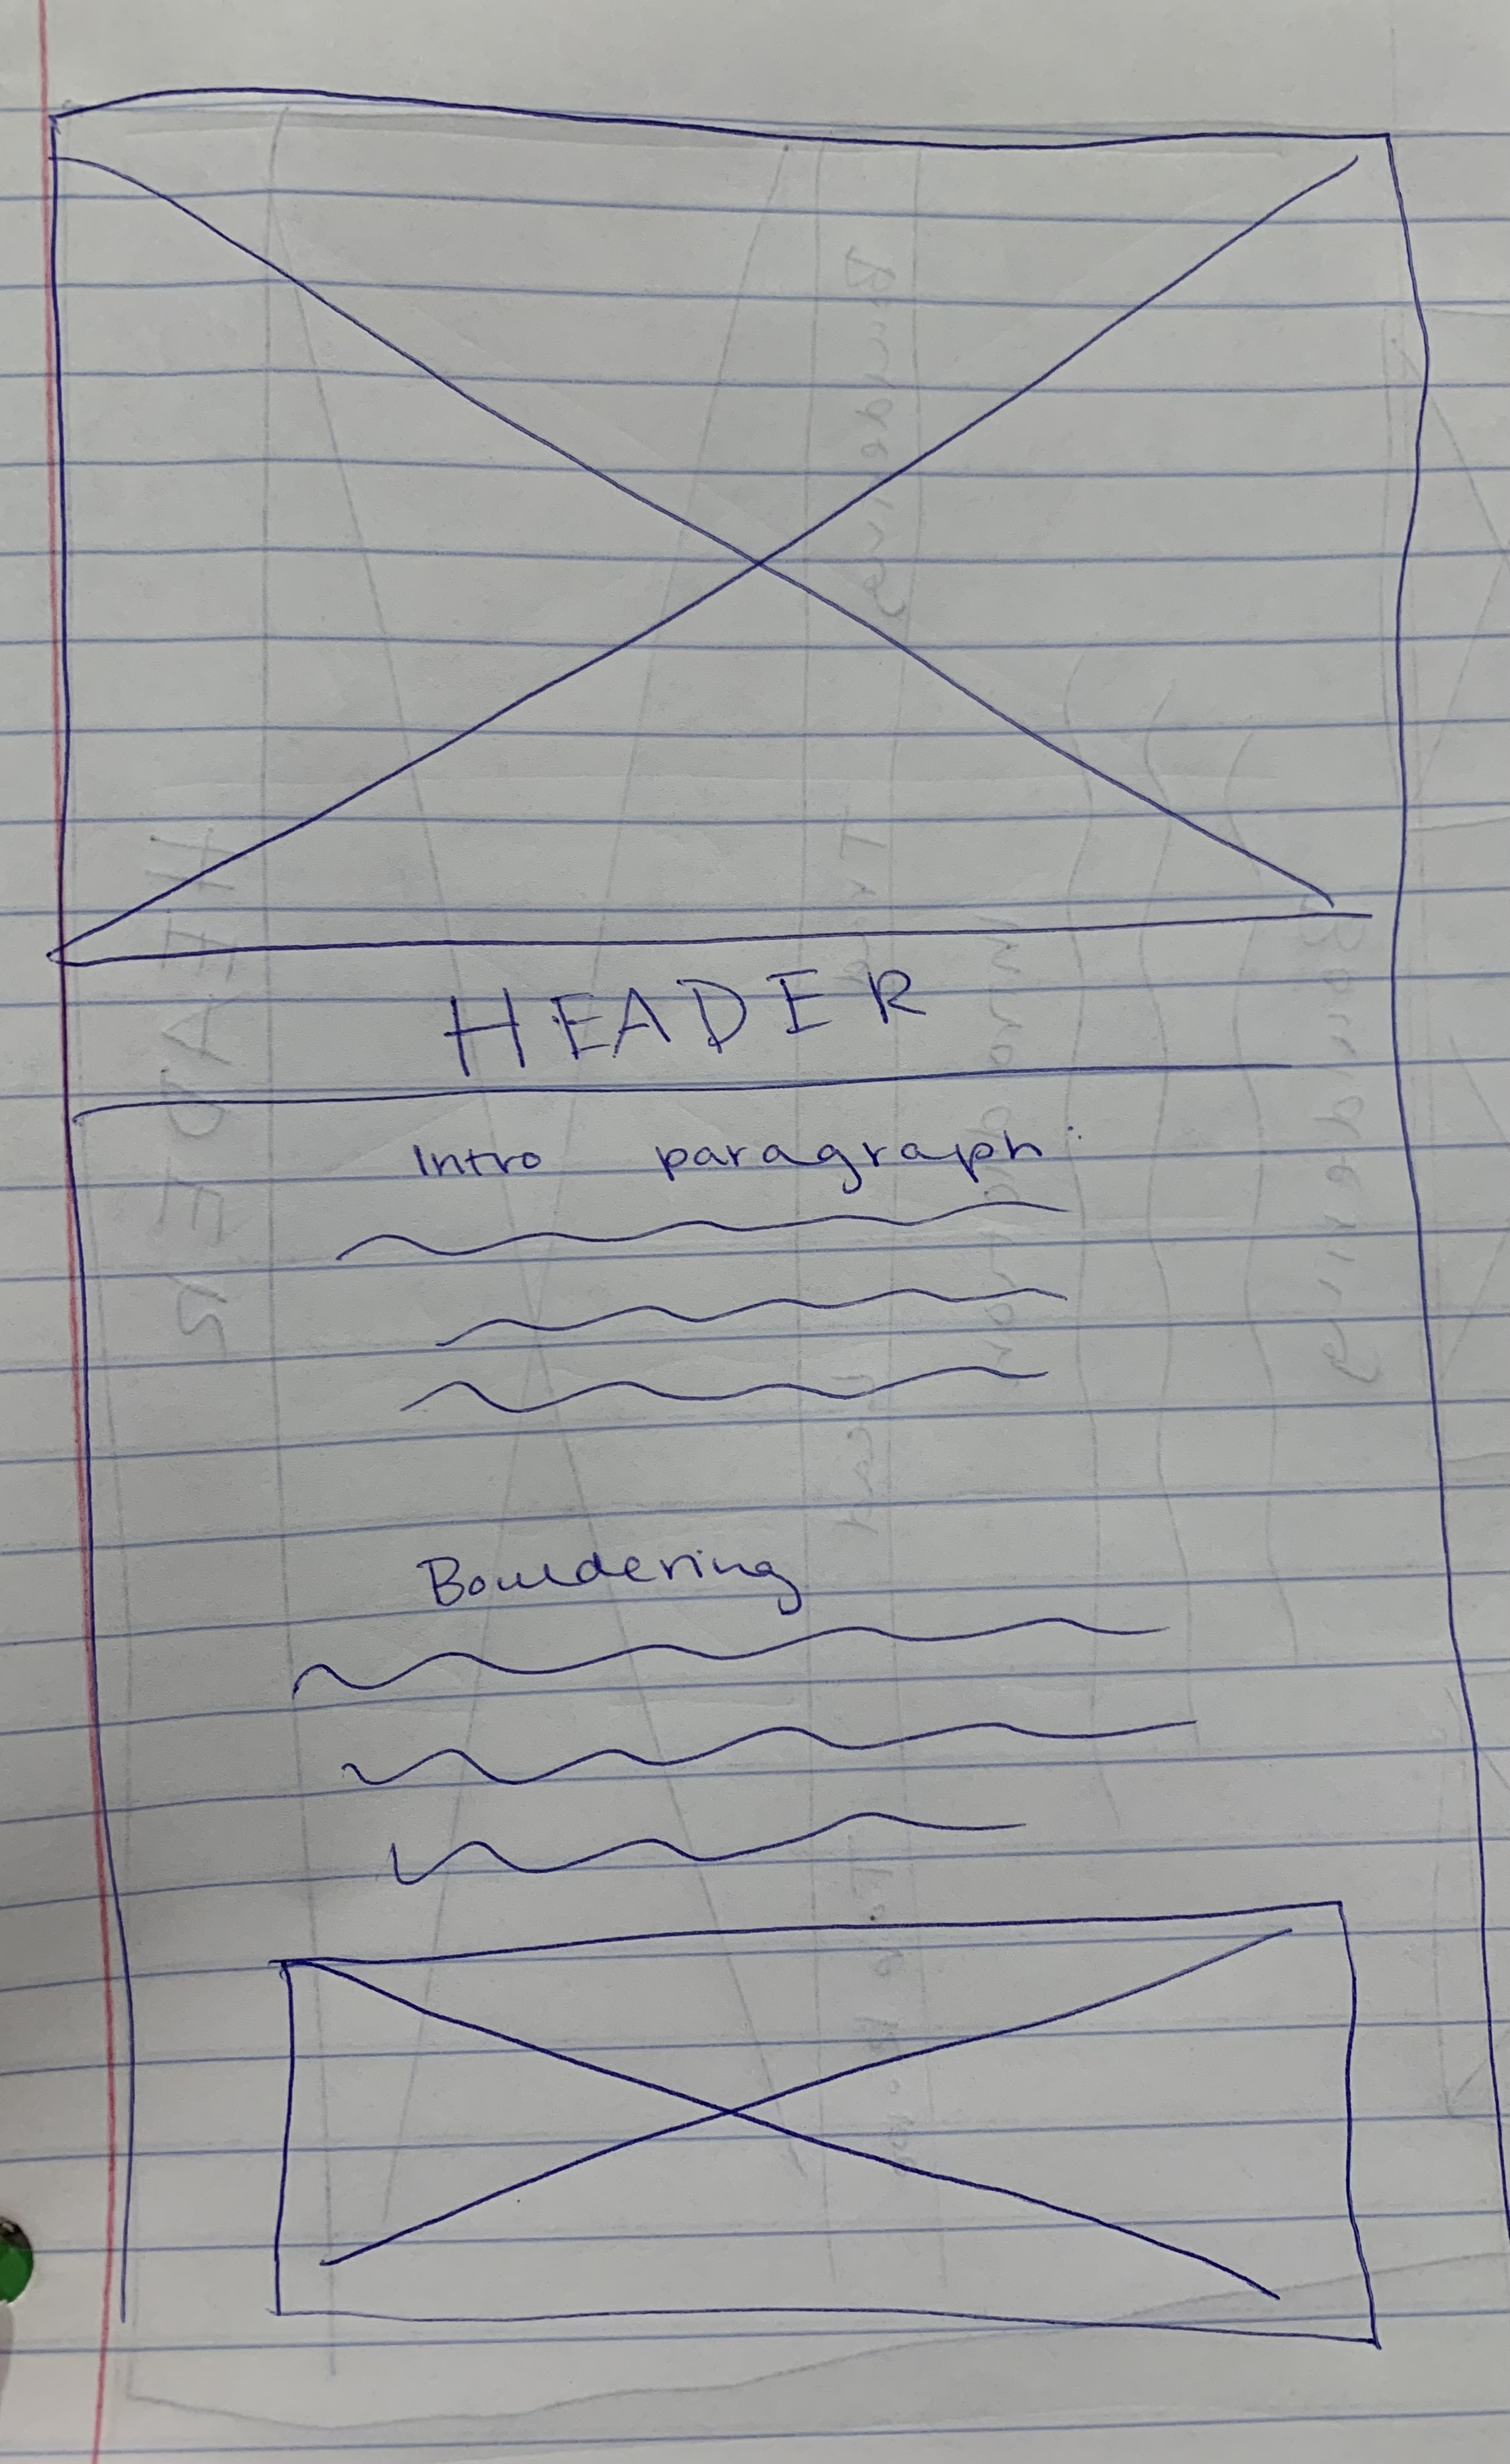 HEADER
Intro paragraph:
Bouldering